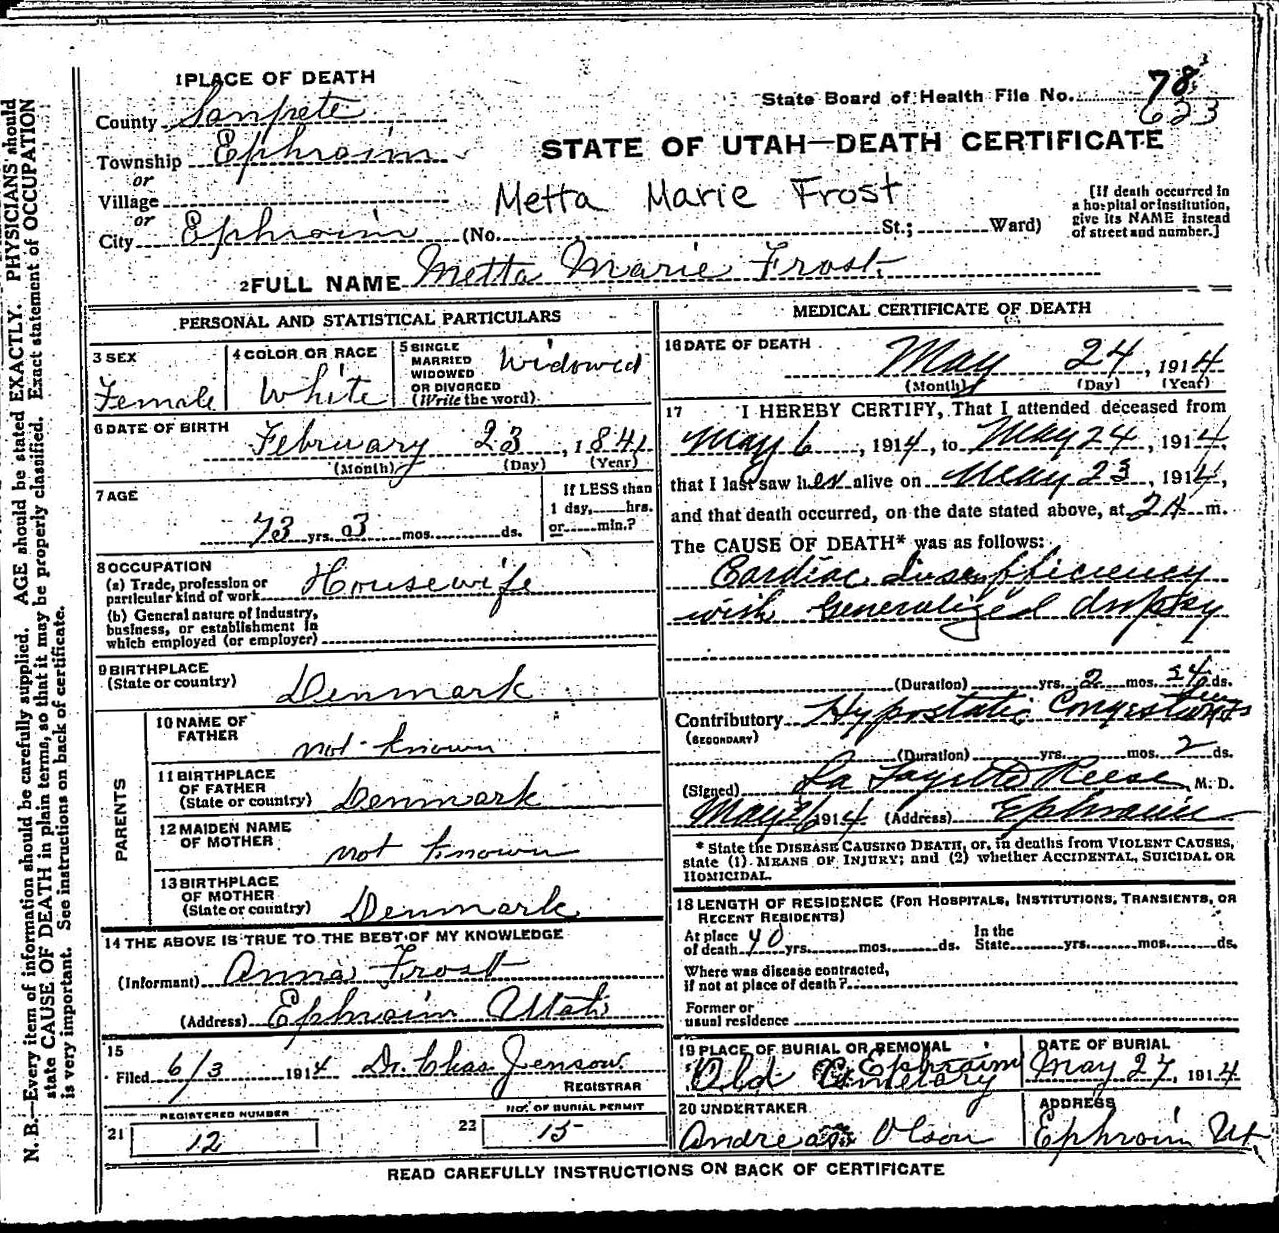 1 PLACE OF DEATH
County Sanpete
Township Ephraim
or
Village
or
City Ephraim (No. St.; Ward)
State Board of Health File No. 78
623
STATE OF UTAH—DEATH CERTIFICATE
Metta Marie Frost
[If death occurred in
a hospital or institution,
give its NAME instead
of street and number.]
2 FULL NAME Metta Marie Frost
PERSONAL AND STATISTICAL PARTICULARS
3 SEX
Female
4 COLOR OR RACE
White
5 SINGLE
MARRIED
WIDOWED
OR DIVORCED
(Write the word)
Widowed
6 DATE OF BIRTH
February 23, 1841
(Month) (Day) (Year)
7 AGE
73 yrs. 03 mos. ds.
If LESS than
1 day, hrs.
or min.?
8 OCCUPATION
(a) Trade, profession or
particular kind of work Housewife
(b) General nature of industry,
business, or establishment in
which employed (or employer)
9 BIRTHPLACE
(State or country)
Denmark
PARENTS
10 NAME OF
FATHER
not known
11 BIRTHPLACE
OF FATHER
(State or country) Denmark
12 MAIDEN NAME
OF MOTHER
not known
13 BIRTHPLACE
OF MOTHER
(State or country) Denmark
14 THE ABOVE IS TRUE TO THE BEST OF MY KNOWLEDGE
(Informant) Anna Frost
(Address) Ephraim Utah
15
Filed 6/3 1914 Dr. Chas Jenson
REGISTRAR
REGISTERED NUMBER
21 12
NO. OF BURIAL PERMIT
22 15
MEDICAL CERTIFICATE OF DEATH
16 DATE OF DEATH
May 24, 1914
(Month) (Day) (Year)
17 I HEREBY CERTIFY, That I attended deceased from
May 6, 1914, to May 24, 1914,
that I last saw her alive on May 23, 1914,
and that death occurred, on the date stated above, at 2 A m.
The CAUSE OF DEATH* was as follows:
Cardiac Insufficiency
with Generalized dropsy
(Duration) yrs. 2 mos. 24 ds.
Contributory Hypostatic Congestion
(SECONDARY)
(Duration) yrs. mos. 2 ds.
(Signed) La Fayette Reese M. D.
May 26 1914 (Address) Ephraim
* State the DISEASE CAUSING DEATH, or, in deaths from VIOLENT CAUSES,
state (1) MEANS OF INJURY; and (2) whether ACCIDENTAL, SUICIDAL OR
HOMICIDAL.
18 LENGTH OF RESIDENCE (FOR HOSPITALS, INSTITUTIONS, TRANSIENTS, OR
RECENT RESIDENTS)
At place
of death 40 yrs. mos. ds.
In the
State yrs. mos. ds.
Where was disease contracted,
if not at place of death?
Former or
usual residence
19 PLACE OF BURIAL OR REMOVAL
Ephraim
Old Cemetery
DATE OF BURIAL
May 27, 1914
20 UNDERTAKER
Andreas Olson
ADDRESS
Ephraim Ut
READ CAREFULLY INSTRUCTIONS ON BACK OF CERTIFICATE
N. B.—Every item of information should be carefully supplied. AGE should be stated EXACTLY. PHYSICIANS should
state CAUSE OF DEATH in plain terms, so that it may be properly classified. Exact statement of OCCUPATION
is very important. See instructions on back of certificate.